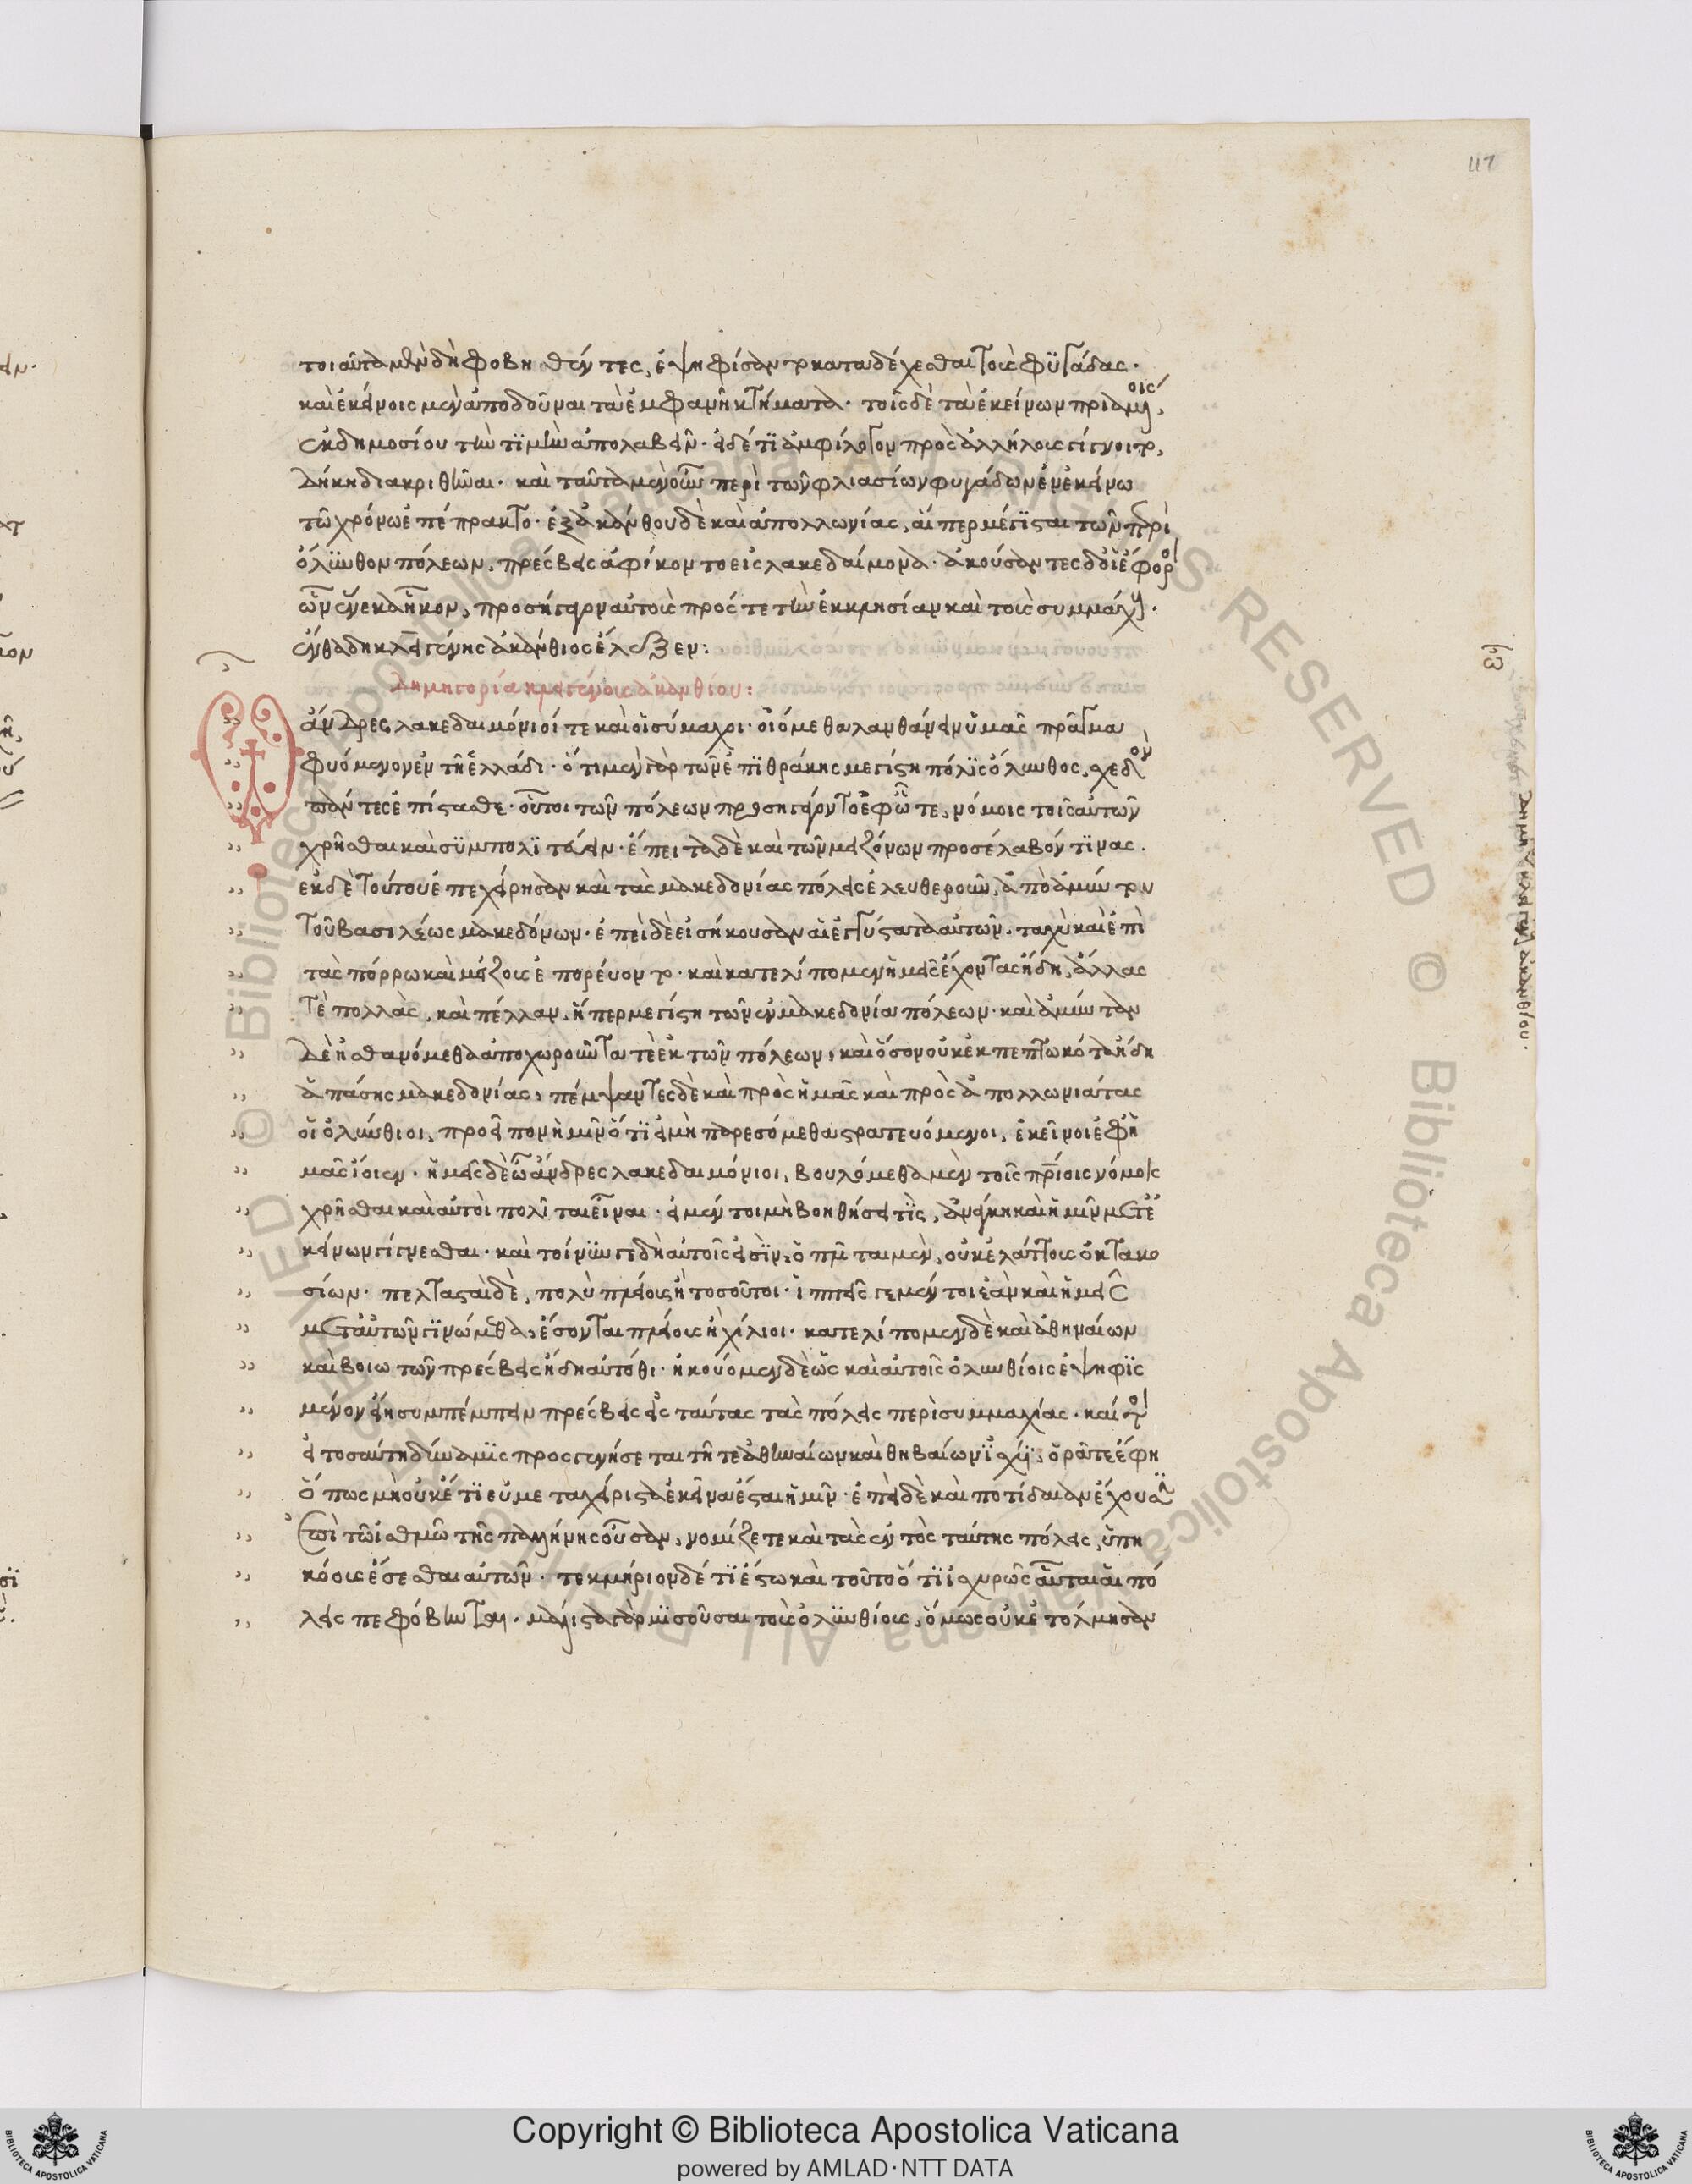 117
τοιαῦτα μὲν δὴ φοβηθέντες, ἐψηφίσαντο καταδέχεσθαι τοὺς φϋγάδας·
καὶ ἐκείνοις μὲν ἀποδοῦναι τὰ ἐμφανῆ κτήματα· τοῖς δὲ τὰ ἐκείνων πριαμένοις,
ἐκ δημοσίου τὴν τϊμὴν ἀπολαβεῖν· εἰ δέ τϊ ἀμφίλογον πρὸς ἀλλήλους γίγνοιτο,
δίκη διακριθῆναι· καὶ ταῦτα μὲν οὖν περὶ τῶν φλιασίων φυγάδων ἐν ἐκείνω
τῶ χρόνω ἐπέπρακτο· ἐξ ἀκάνθου δὲ καὶ ἀπολλωνίας, αἵπερ μέγϊσται τῶν περὶ
ὄλϋνθον πόλεων, πρέσβεις ἀφίκοντο εἰς λακεδαίμονα· ἀκούσαντες δ' οἱ ἔφοροι
ὧν ἕνεκα ἧκον, προσήγαγον αὐτοὺς πρός τε τὴν ἐκκλησίαν καὶ τοὺς συμμάχους·
ἔνθα δὴ κλειγένης ἀκάνθιος ἔλεξεν:
δημηγορία κλειγένους ἀκανθίου:
Ὦ ἄνδρες λακεδαιμόνιοί τε καὶ οἱ σύμαχοι· οἰόμεθα λανθάνειν ὑμᾶς πρᾶγμα
φυόμενον ἐν τῆ ἑλλάδι· ὅτι μὲν γὰρ τῶν ἐπὶ θράκης μεγίστη πόλϊς ὄλυνθος, σχεδὸν
πάντες ἐπίστασθε· οὗτοι τῶν πόλεων προσηγάγοντο ἐφ' ὧ τε, νόμοις τοῖς αὐτῶν
χρῆσθαι καὶ σϋμπολϊτεύειν· ἔπειτα δὲ καὶ τῶν μειζόνων προσέλαβόν τϊνας.
ἐκ δὲ τούτου ἐπεχείρησαν καὶ τὰς μακεδονίας πόλεις ἐλευθεροῦν, ἀπὸ ἀμύντου
τοῦ βασιλέως μακεδόνων· ἐπεὶ δὲ εἰσήκουσαν αἱ ἐγγύτατα αὐτῶν, ταχὺ καὶ ἐπὶ
τὰς πόρρω καὶ μείζους ἐπορεύοντο· καὶ κατελίπομεν ἡμεῖς ἔχοντας ἤδη, ἄλλας
τὲ πολλὰς, καὶ πέλλαν, ἥπερ μεγίστη τῶν ἐν μακεδονία πόλεων· καὶ ἀμύνταν
δὲ ἠσθανόμεθα ἀποχωροῦντα τὲ ἐκ τῶν πόλεων, καὶ ὅσον οὐκ ἐκπεπτωκότα ἤδη
ἁπάσης μακεδονίας, πέμψαντες δὲ καὶ πρὸς ἡμᾶς καὶ πρὸς ἀπολλωνιάτας
οἱ ὀλύνθιοι, προεῖπον ἡμῖν ὅτϊ εἰ μὴ παρεσόμεθα στρατευόμενοι, ἐκεῖνοι ἐφ' ἡ
μᾶς ἴοιεν· ἡμεῖς δὲ ὦ ἄνδρες λακεδαιμόνιοι, βουλόμεθα μὲν τοῖς πατρίοις νόμοις
χρῆσθαι καὶ αὐτοὶ πολῖται εἶναι· εἰ μέντοι μὴ βοηθήσει τϊς, ἀνάγκη καὶ ἡμῖν μετ' ἐ
κείνων γίγνεσθαι· καὶ τοι νῦν γ' ἤδη αὐτοῖς εἰσϊν, ὁπλῖται μὲν, οὐκ ἐλάττους ὀκτακο
σίων· πελτασταὶ δὲ, πολὺ πλείους ἢ τοσοῦτοι· ἱππεῖς γε μέντοι ἐὰν καὶ ἡμεῖς
μετ' αὐτῶν γϊνώμεθα, ἔσονται πλείους ἢ χίλιοι· κατελίπομεν δὲ καὶ ἀθηναίων
καὶ βοιωτῶν πρέσβεις ἤδη αὐτόθι· ἠκούομεν δὲ ὡς καὶ αὐτοῖς ὀλυνθίοις ἐψηφϊς
μένον εἴη συμπέμπειν πρέσβεις εἰς ταύτας τὰς πόλεις περὶ συμμαχίας· καί τοι
εἰ τοσαύτη δύναμϊς προσγενήσεται τῆ τε ἀθηναίων καὶ θηβαίων ἰσχύϊ, ὁρᾶτε ἔφη
ὅπως μὴ οὐκέτϊ εὐμεταχείριστα ἐκεῖνα ἔσται ἡμῖν· ἐπεὶ δὲ καὶ ποτίδαιαν ἔχουσιν
ἐπὶ τῶ ἰσθμῶ τῆς παλλήνης οὖσαν, νομίζετε καὶ τὰς ἐντὸς ταύτης πόλεις, ὑπη
κόους ἔσεσθαι αὐτῶν· τεκμήριον δέ τϊ ἔστω καὶ τοῦτο ὅτϊ ἰσχυρῶς αὗται αἱ πό
λεις πεφόβηνται· μάλιστα γὰρ μϊσοῦσαι τοὺς ὀλϋνθίους, ὅμως οὐκ ἐτόλμησαν
δημηγορία κλειγένους ἀκανθίου·